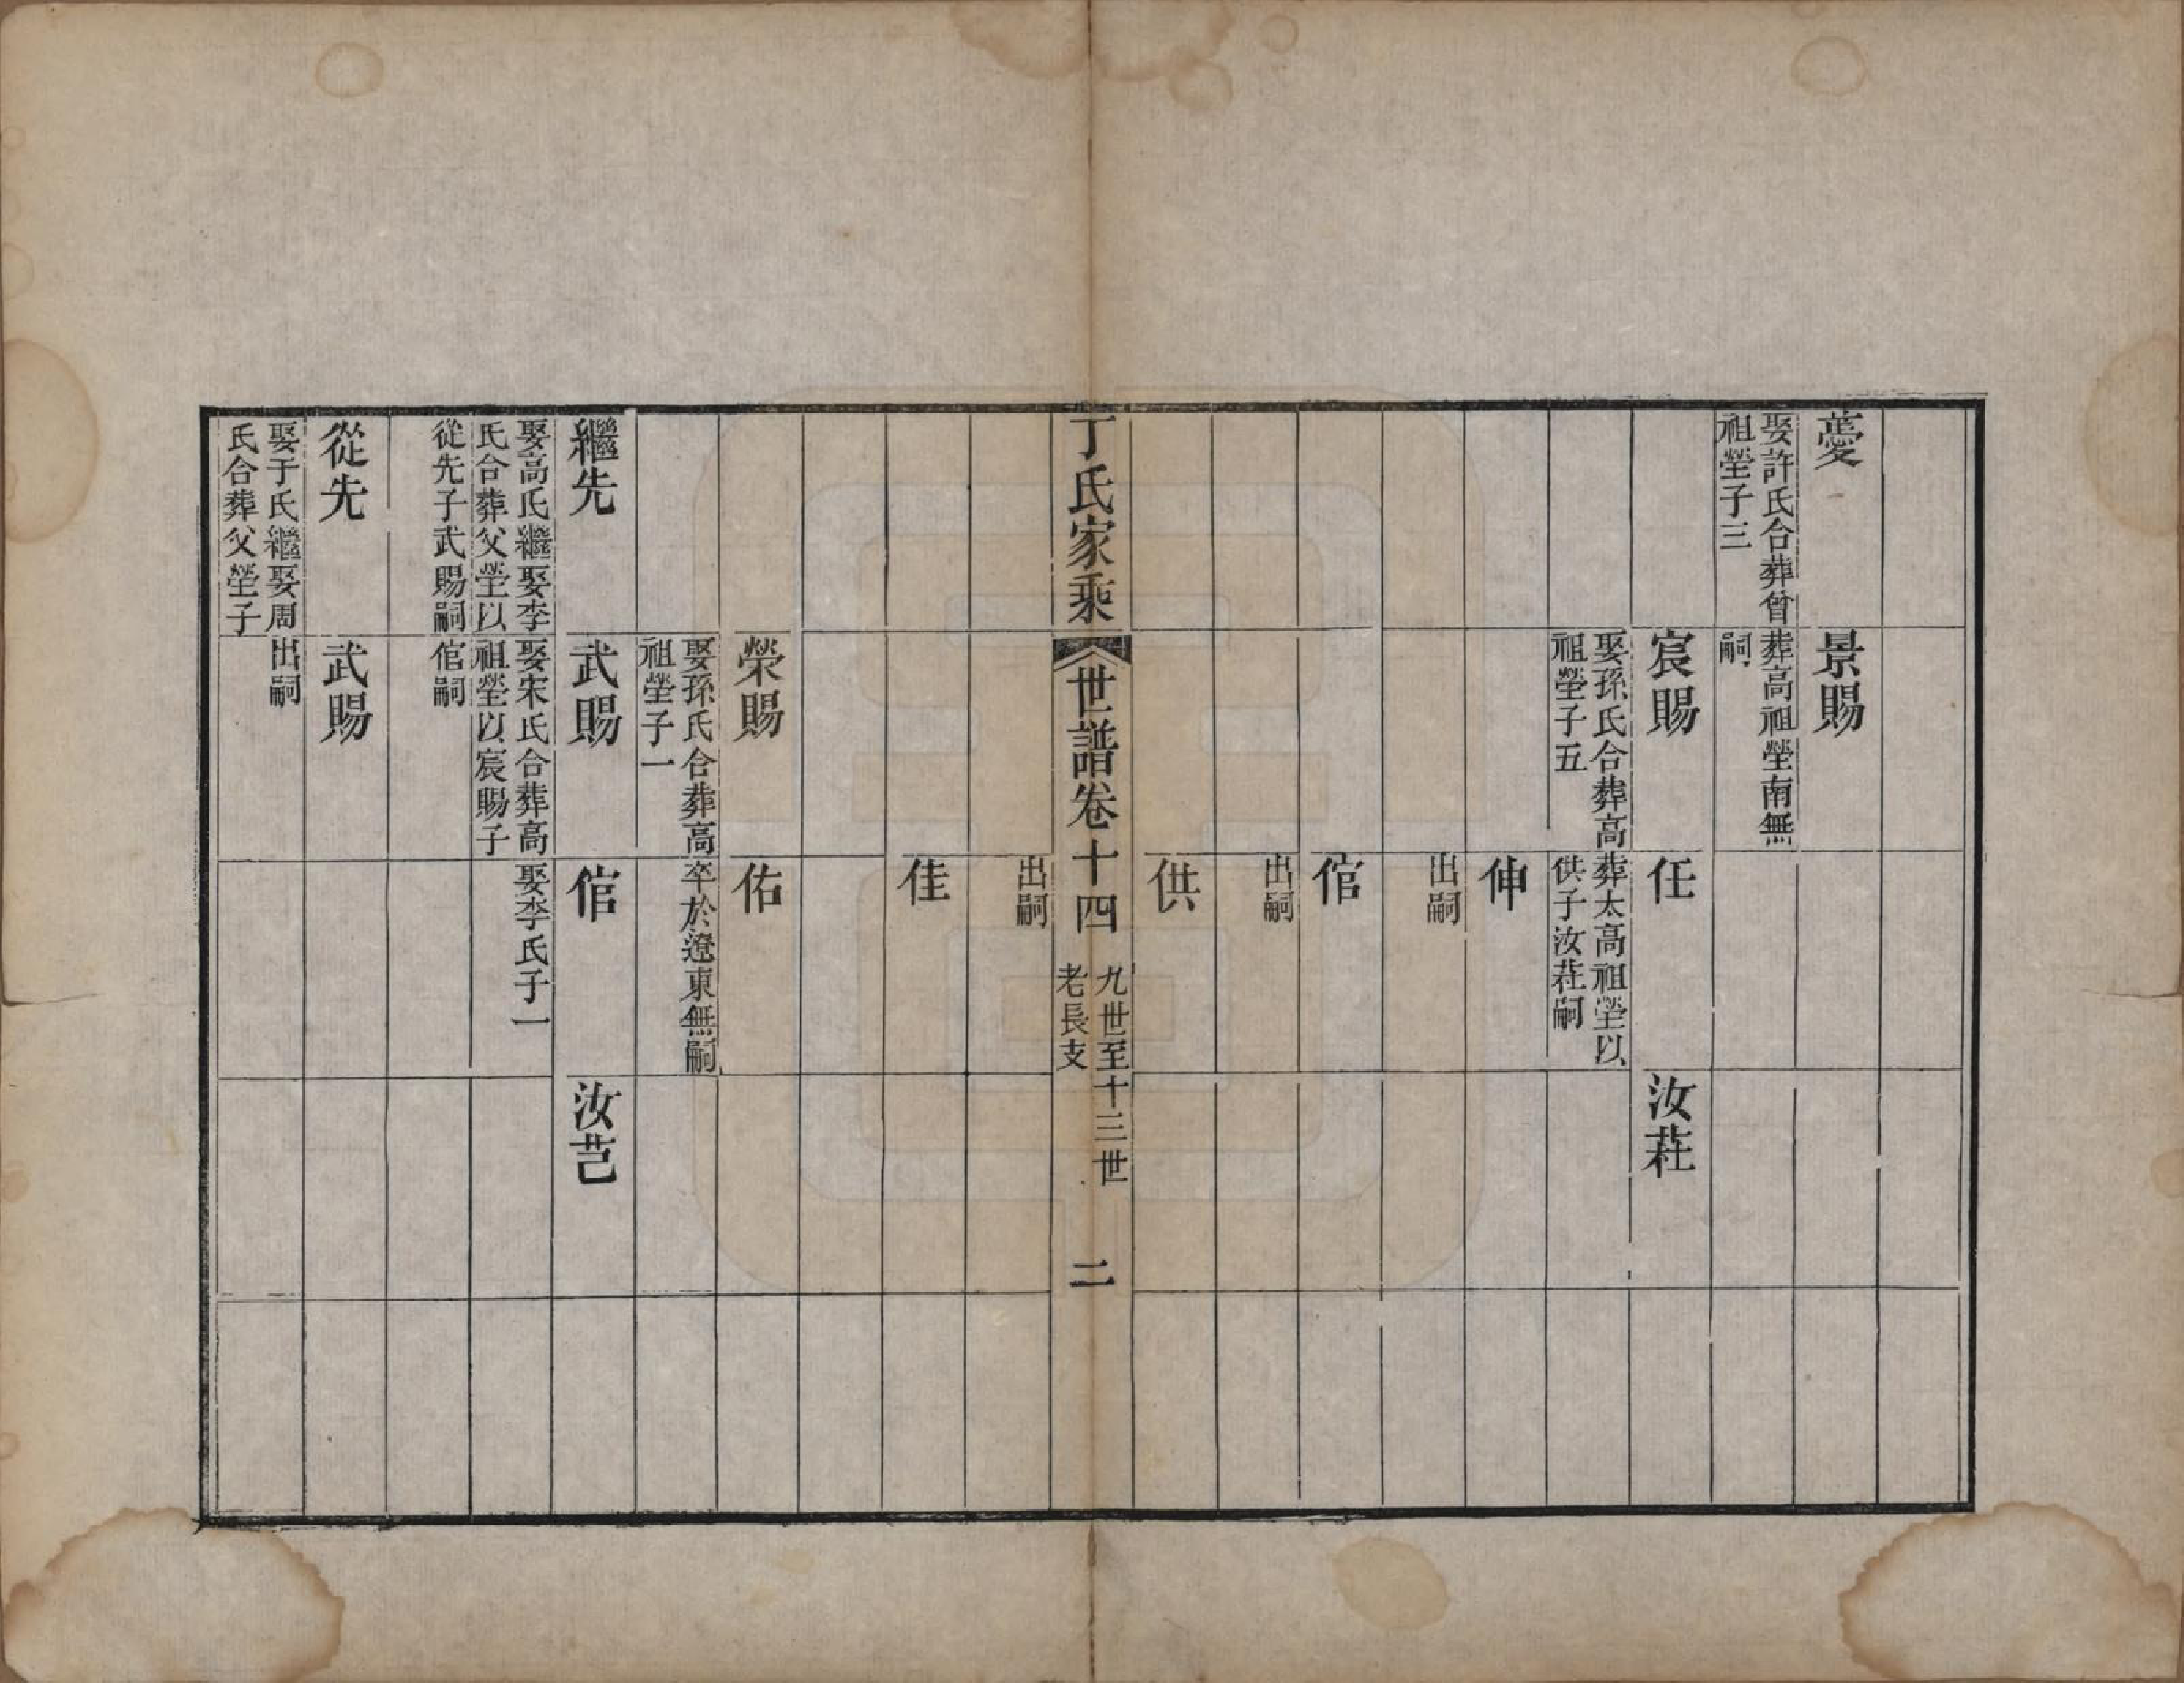 薆
娶許氏合葬曾
祖塋子三
景賜
葬高祖塋南無
嗣
宸賜
娶孫氏合葬高
祖塋子五
任
葬太高祖塋以
供子汝萚嗣
汝萚
伸
出嗣
倌
出嗣
供
出嗣
佳
丁氏家乘
世譜卷十四
九世至十三世
老長支
二
榮賜
娶孫氏合葬高
祖塋子一
佑
卒於遼東無嗣
繼先
娶高氏繼娶李
氏合葬父塋以
從先子武賜嗣
武賜
娶宋氏合葬高
祖塋以宸賜子
倌嗣
倌
娶李氏子一
汝芑
從先
娶于氏繼娶周
氏合葬父塋子
武賜
出嗣